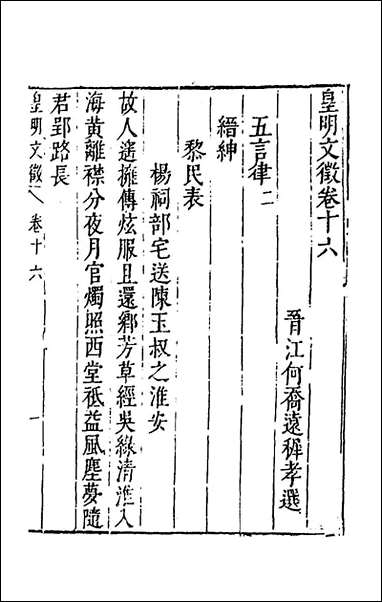 皇明文徵卷十六
晉江何喬遠穉孝選
五言律二
縉紳
黎民表
楊祠部宅送陳玉叔之淮安
故人遙擁傳炫服且還鄉芳草經吳綠清淮入
海黃離襟分夜月官燭照西堂祗益風塵夢隨
君郢路長
皇明文徵 卷十六 一